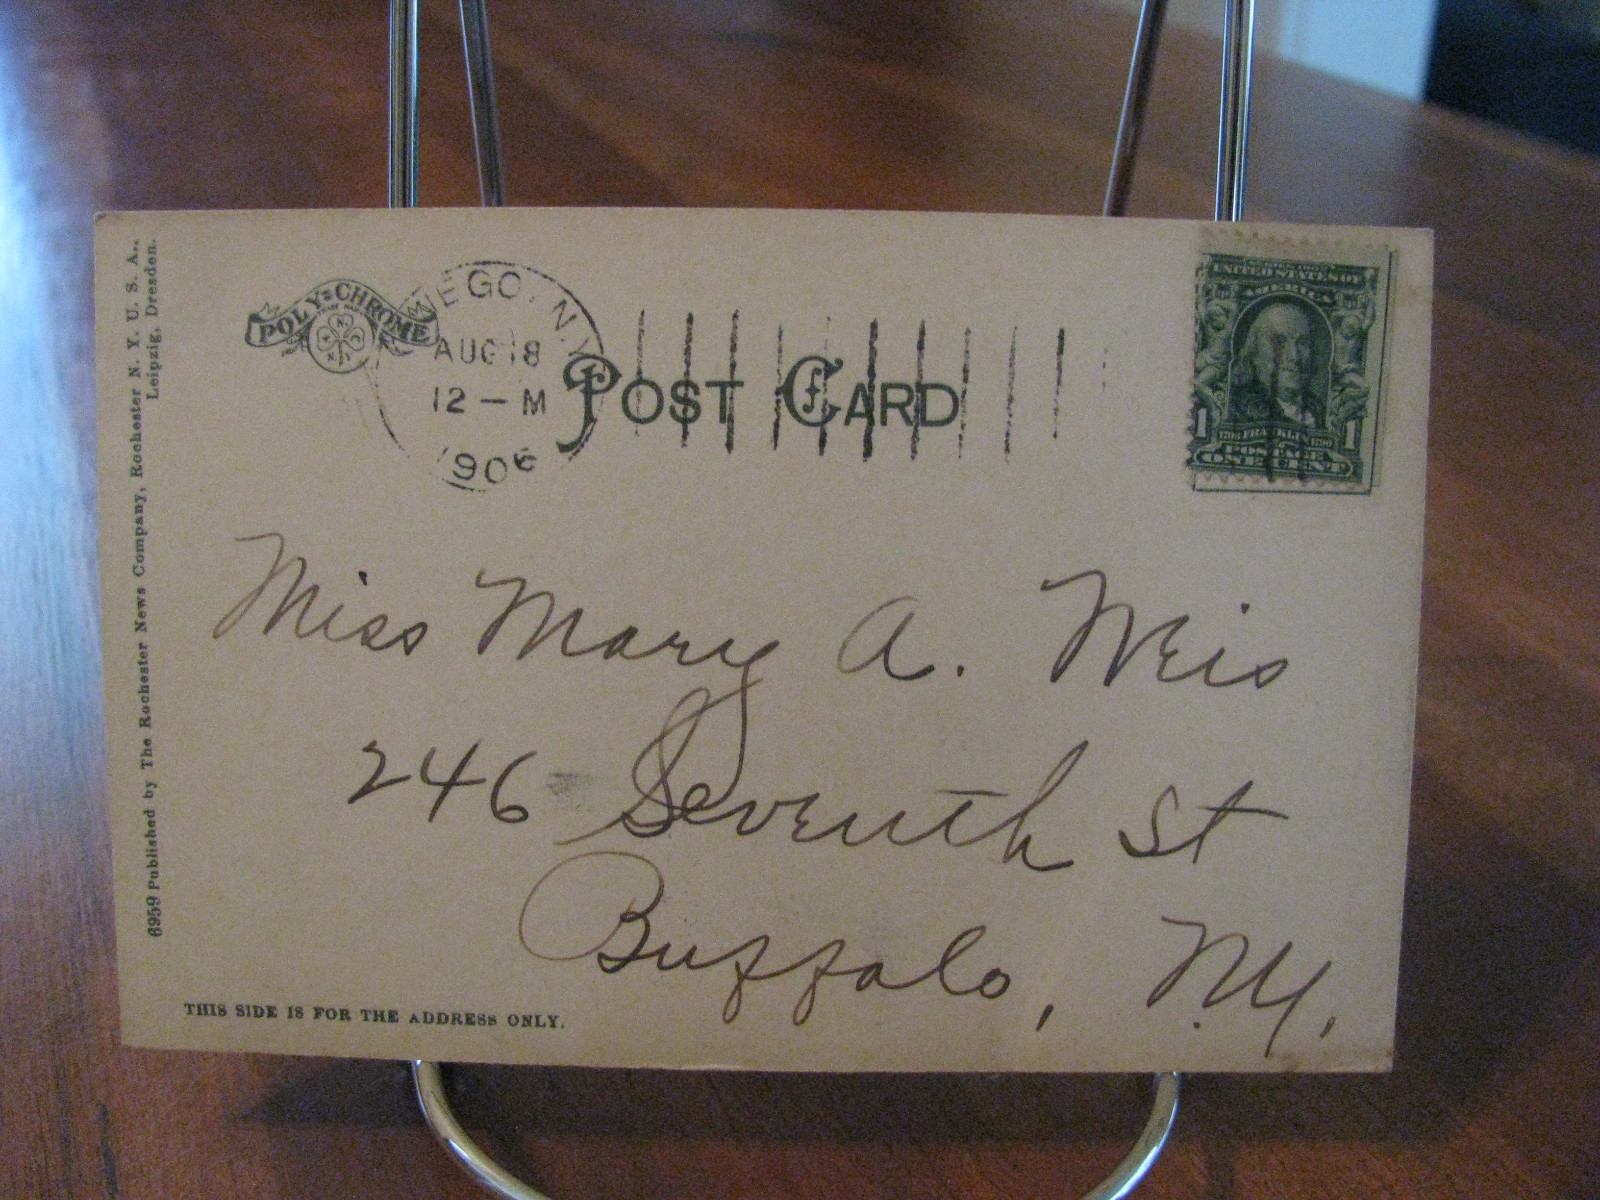 6959 Published by The Rochester News Company, Rochester N. Y. U. S. A.,
Leipzig, Dresden.
POLY=CHROME
EGO, N.Y.
AUG 18
12 — M
1906
POST CARD
UNITED STATES OF
AMERICA
1 1
1706 FRANKLIN 1790
POSTAGE
ONE CENT
Miss Mary A. Weis
246 Seventh St
Buffalo, N.Y.
THIS SIDE IS FOR THE ADDRESS ONLY.